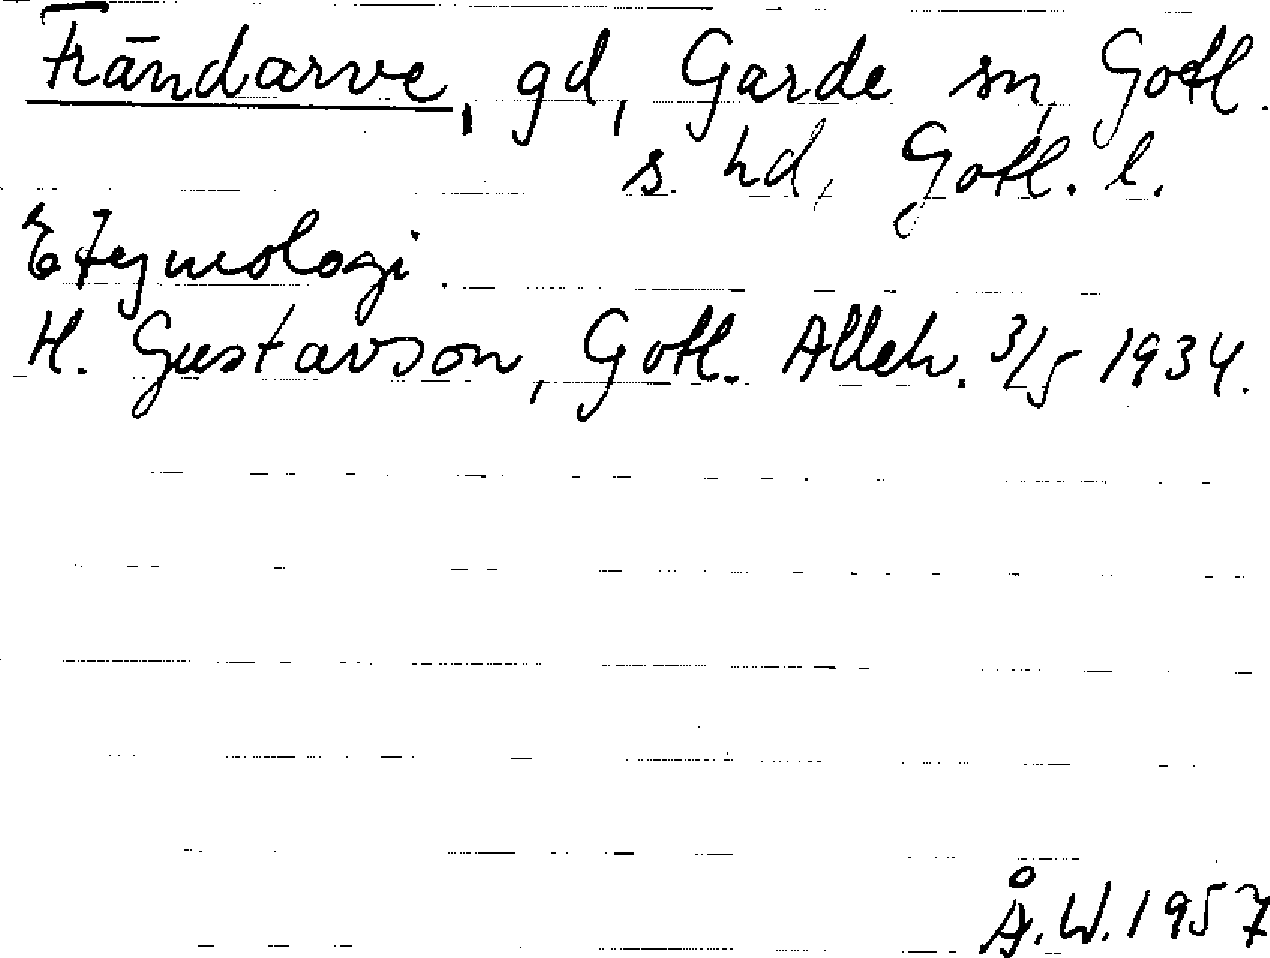 Frändarve, gd, Garde sn, Gotl.
s hd, Gotl. l.
Etymologi.
H. Gustavson, Gotl. Alleh. 3/5 1934.
Å.W. 1957